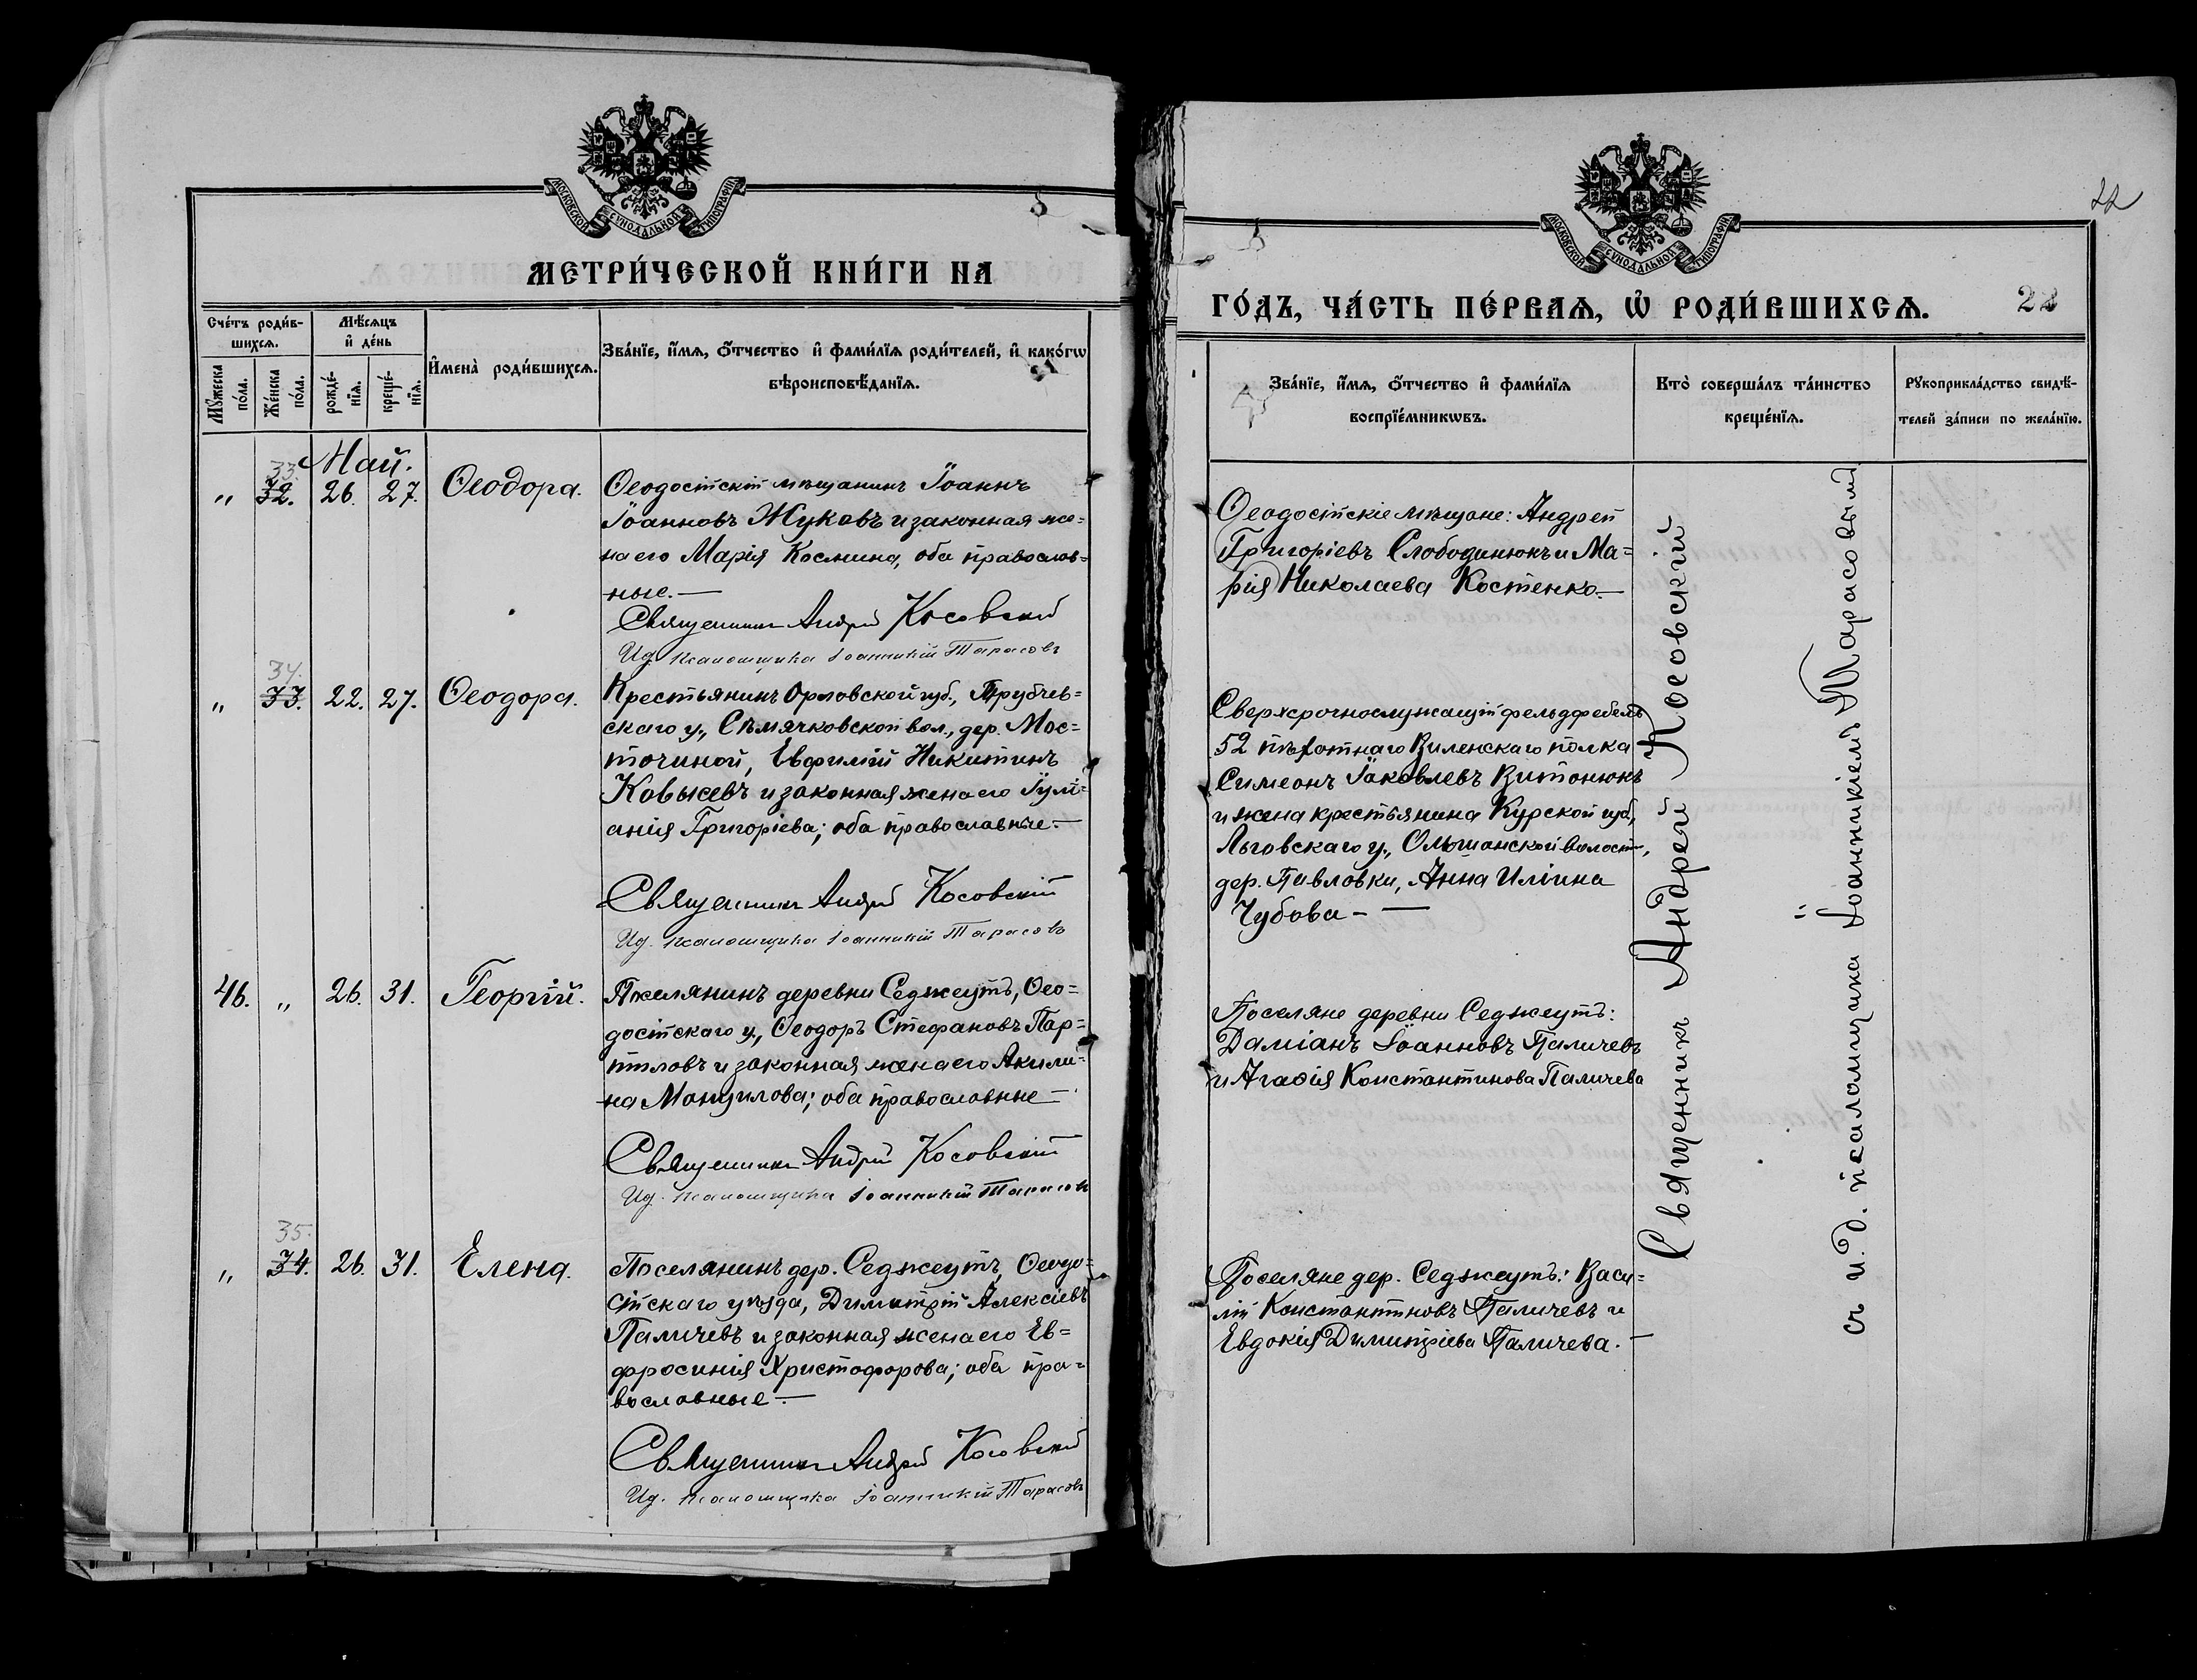 МОСКОВСКОЙ СУНОДАЛЬНОЙ ТИПОГРАФІИ
МЕТРИ́ЧЕСКОЙ КНИ́ГИ НА
Сче́тъ роди́в-
шихсѧ.
Мѣ́сѧцъ
и҆ де́нь
И҆мена̀ роди́вшихсѧ.
Зва́нїе, и҆́мѧ, ѻ҆́тчество и҆ фами́лїѧ роди́телей, и҆ како́гѡ
вѣроисповѣ́данїѧ.
Мꙋ́жеска
по́ла.
Же́нска
по́ла.
рожде́-
нїѧ.
креще́-
нїѧ.
Май.
33.
„ 32. 26. 27. Ѳеодора.
Ѳеодосійскій мѣщанинъ Іоаннъ
Іоанновъ Жуковъ и законная же=
на его Марія Космина, оба православ=
ные.—
Священникъ Андрей Косовский
И.д. псаломщика Іоанникій Тарасовъ
34.
„ 33. 22. 27. Ѳеодора.
Крестьянинъ Орловской губ., Трубчев=
скаго у., Сѣмячковской вол., дер. Мос=
точиной, Евфимій Никитинъ
Ковысевъ и законная жена его Іулі=
анія Григоріева; оба православные.—
Священникъ Андрей Косовскій
И.д. псаломщика Іоанникій Тарасовъ
46. „ 26. 31. Георгій.
Поселянинъ деревни Седжеутъ, Ѳео=
досійскаго у., Ѳеодоръ Стефановъ Пар=
питовъ и законная жена его Акили=
на Мануилова; оба православные—
Священникъ Андрей Косовскій
И.д. псаломщика Іоанникій Тарасовъ
35.
„ 34. 26. 31. Елена.
Поселянинъ дер. Седжеутъ, Ѳеодо=
сійскаго уѣзда, Димитрій Алексіевъ
Паличевъ и законная жена его Ев=
фросинія Христофорова; оба пра=
вославные—
Священникъ Андрей Косовский
И.д. псаломщика Іоанникій Тарасовъ
22
МОСКОВСКОЙ СУНОДАЛЬНОЙ ТИПОГРАФІИ
ГО́ДЪ, ЧА́СТЬ ПЕ́РВАѦ, Ѡ҆ РОДИ́ВШИХСѦ.
22
Зва́нїе, и҆́мѧ, ѻ҆́тчество и҆ фами́лїѧ
воспрїе́мникѡвъ.
Кто̀ соверша́лъ та́инство
креще́нїѧ.
Рꙋкоприкла́дство свидѣ́-
телей за́писи по жела́нїю.
Ѳеодосійскіе мѣщане: Андрей
Григоріевъ Слободинюкъ и Ма=
рія Николаева Костенко.—
Сверхсрочнослужащій фельдфебель
52 пѣхотнаго Виленскаго полка
Симеонъ Іаковлевъ Витонюкъ
и жена крестьянина Курской губ.,
Льговскаго у., Ольшанской волости,
дер. Павловки, Анна Иліина
Чубова—
Поселяне деревни Седжеутъ:
Даміанъ Іоанновъ Паличевъ
и Агаѳія Константинова Паличева
Поселяне дер. Седжеутъ: Васи=
лій Константиновъ Паличевъ и
Евдокія Димитріева Паличева.—
Священникъ Андрей Косовскій
съ и.д. псаломщика Іоанникіемъ Тарасовымъ